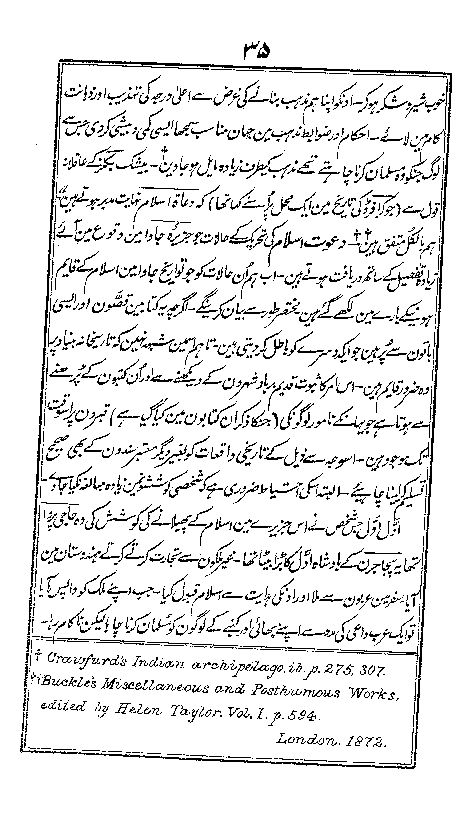 ۳۵
خوب شیر و شکر ہو کر۔ اونکو اپنا ہم مذہب بنانے کی غرض سے اعلیٰ درجہ کی تہذیب اور ذہانت
کام مین لائے۔ احکام اور ضوابط مذہب مین جہان مناسب سمجھا ایسی کمی و بیشی کر دی جس سے
لوگ جنکو وہ مسلمان کرنا چاہتے تھے مذہب کیطرف زیادہ مایل ہو جاوین† بیشک بکلز کے عاقلانہ
قول سے (جو کرافرڈ کی تاریخ مین ایک محل پر اُسنے کہا تھا) کہ دعاۃ اسلام نہایت مدبر ہوتے ہین
ہم بالکل متفق ہین†† دعوت اسلام کی تحریک کے حالات جو جزیرہ جاوا مین وقوع مین آئے
زیادہ تفصیل کے ساتھ دریافت ہوتے ہین۔ اب ہم اُن حالات کو جو تواریخ جاوا مین اسلام کے قایم
ہونیکے بارے مین لکھے گئے ہین مختصر طور سے بیان کرینگے۔ اگرچہ یہ کتابین قصّون اور ایسی
باتون سے پُر ہین جو ایک دوسرے کو باطل کر دیتی ہین۔ تاہم اسمین شبہ نہین کہ تاریخانہ بنیاد پر
وہ ضرور قایم ہین۔ اس امر کا ثبوت قدیم برباد شہرون کے دیکھنے سے اور اُن کتبون کے پڑھنے
سے ہوتا ہے جو یہانکے نامور لوگونکی (جنکا ذکر ان کتابون مین کیا گیا ہے) قبرون پر اسوقت
تک موجود ہین۔ اسوجہ سے ذیل کے تاریخی واقعات کو بغیر دیگر معتبر سندون کے بھی صحیح
تسلیم کر لینا چاہیئے۔ البتہ اسکی احتیاط ضروری ہے کہ شخصی کوششونمین زیادہ مبالغہ نکیا جاوے
اوّل اوّل جس شخص نے اس جزیرے مین اسلام کے پھیلانے کی کوشش کی وہ حاجی پروا
تھا یہ پجاجرن کے بادشاہ اوّل کا بڑا بیٹا تھا۔ غیر ملکون سے تجارت کرتے کرتے ہندوستان مین
آیا۔ سفر مین عربون سے ملا اور اونکی ہدایت سے اسلام قبول کیا۔ جب اپنے ملک کو واپس آیا
تو ایک عرب داعی کی مدد سے اپنے بھائی اور کنبے کے لوگون کو مسلمان کرنا چاہا لیکن ناکام رہا۔
† Crawfurd's Indian archipelago, ib. p. 275, 307.
†† Buckle's Miscellaneous and Posthumous Works,
edited by Helen Taylor. Vol, I. p. 594.
London. 1872.